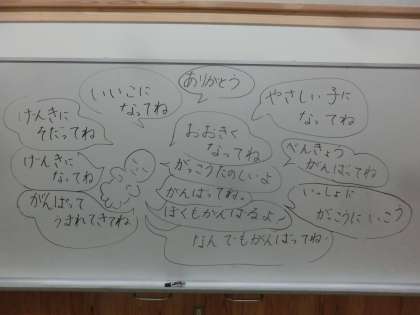 ありがとう
いいこに
なってね
やさしい子に
なってね
けんきに
そだってね
おおきく
なってね
べんきょう
がんばってね
けんきに
なってね
がっこうたのしいよ
がんばってね。
いっしょに
がっこうにいこう
がんばって
うまれてきてね
ぼくもがんばるよ
なんでもがんばってね